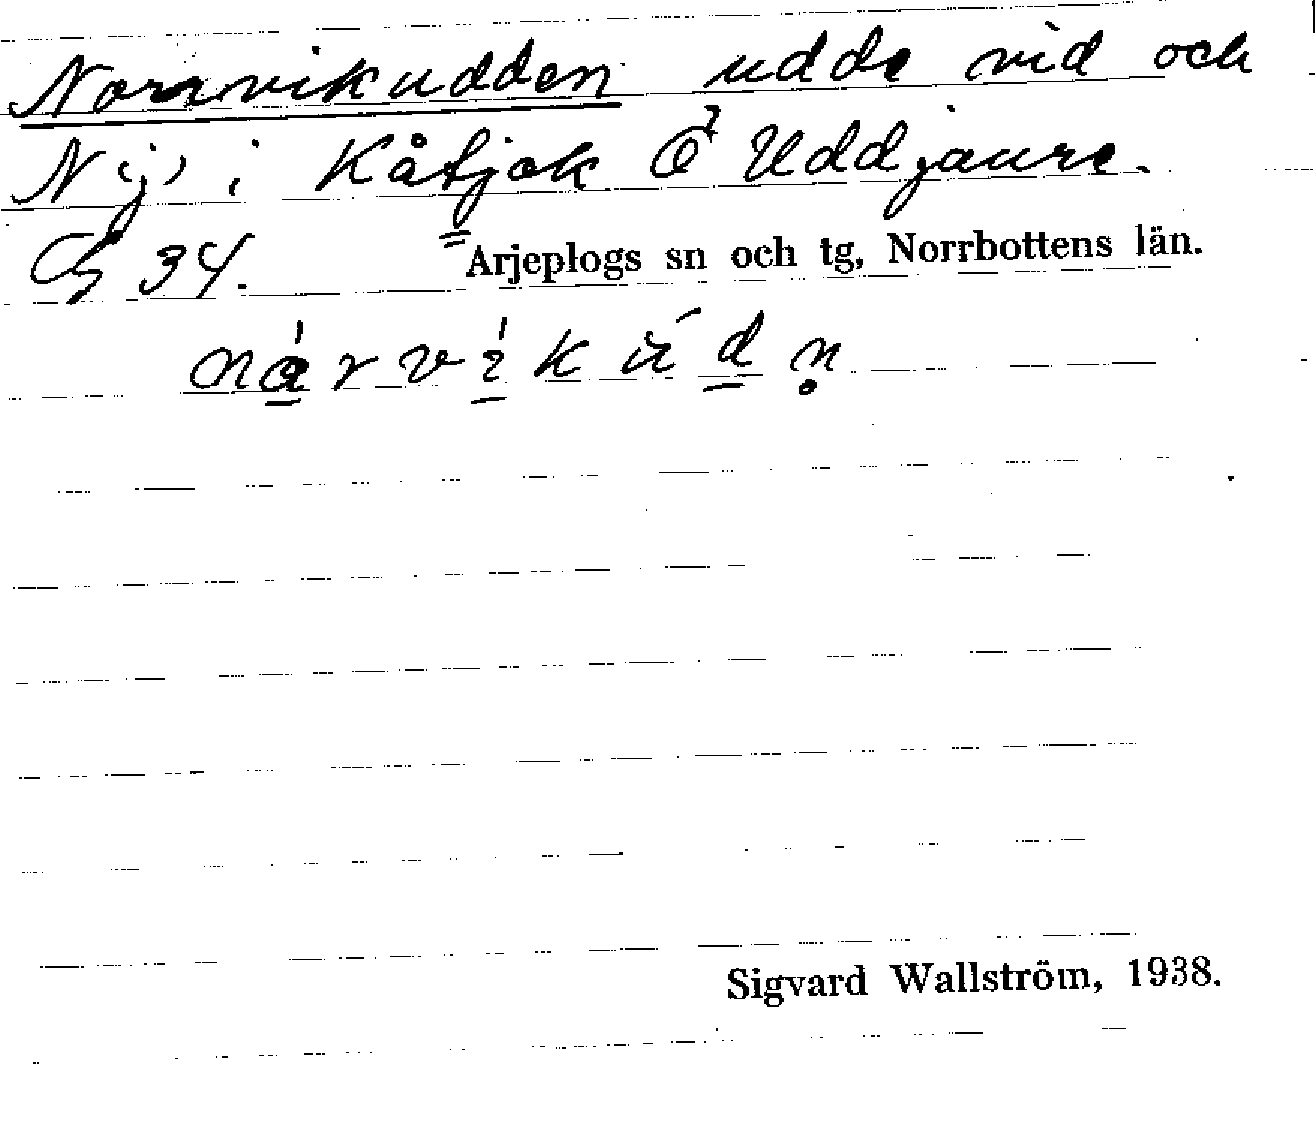 Norrvikudden udde vid och
N (j) i Kåtjok Ö Uddjaure.
34. Arjeplogs sn och tg, Norrbottens län.
Sigvard Wallström, 1938.